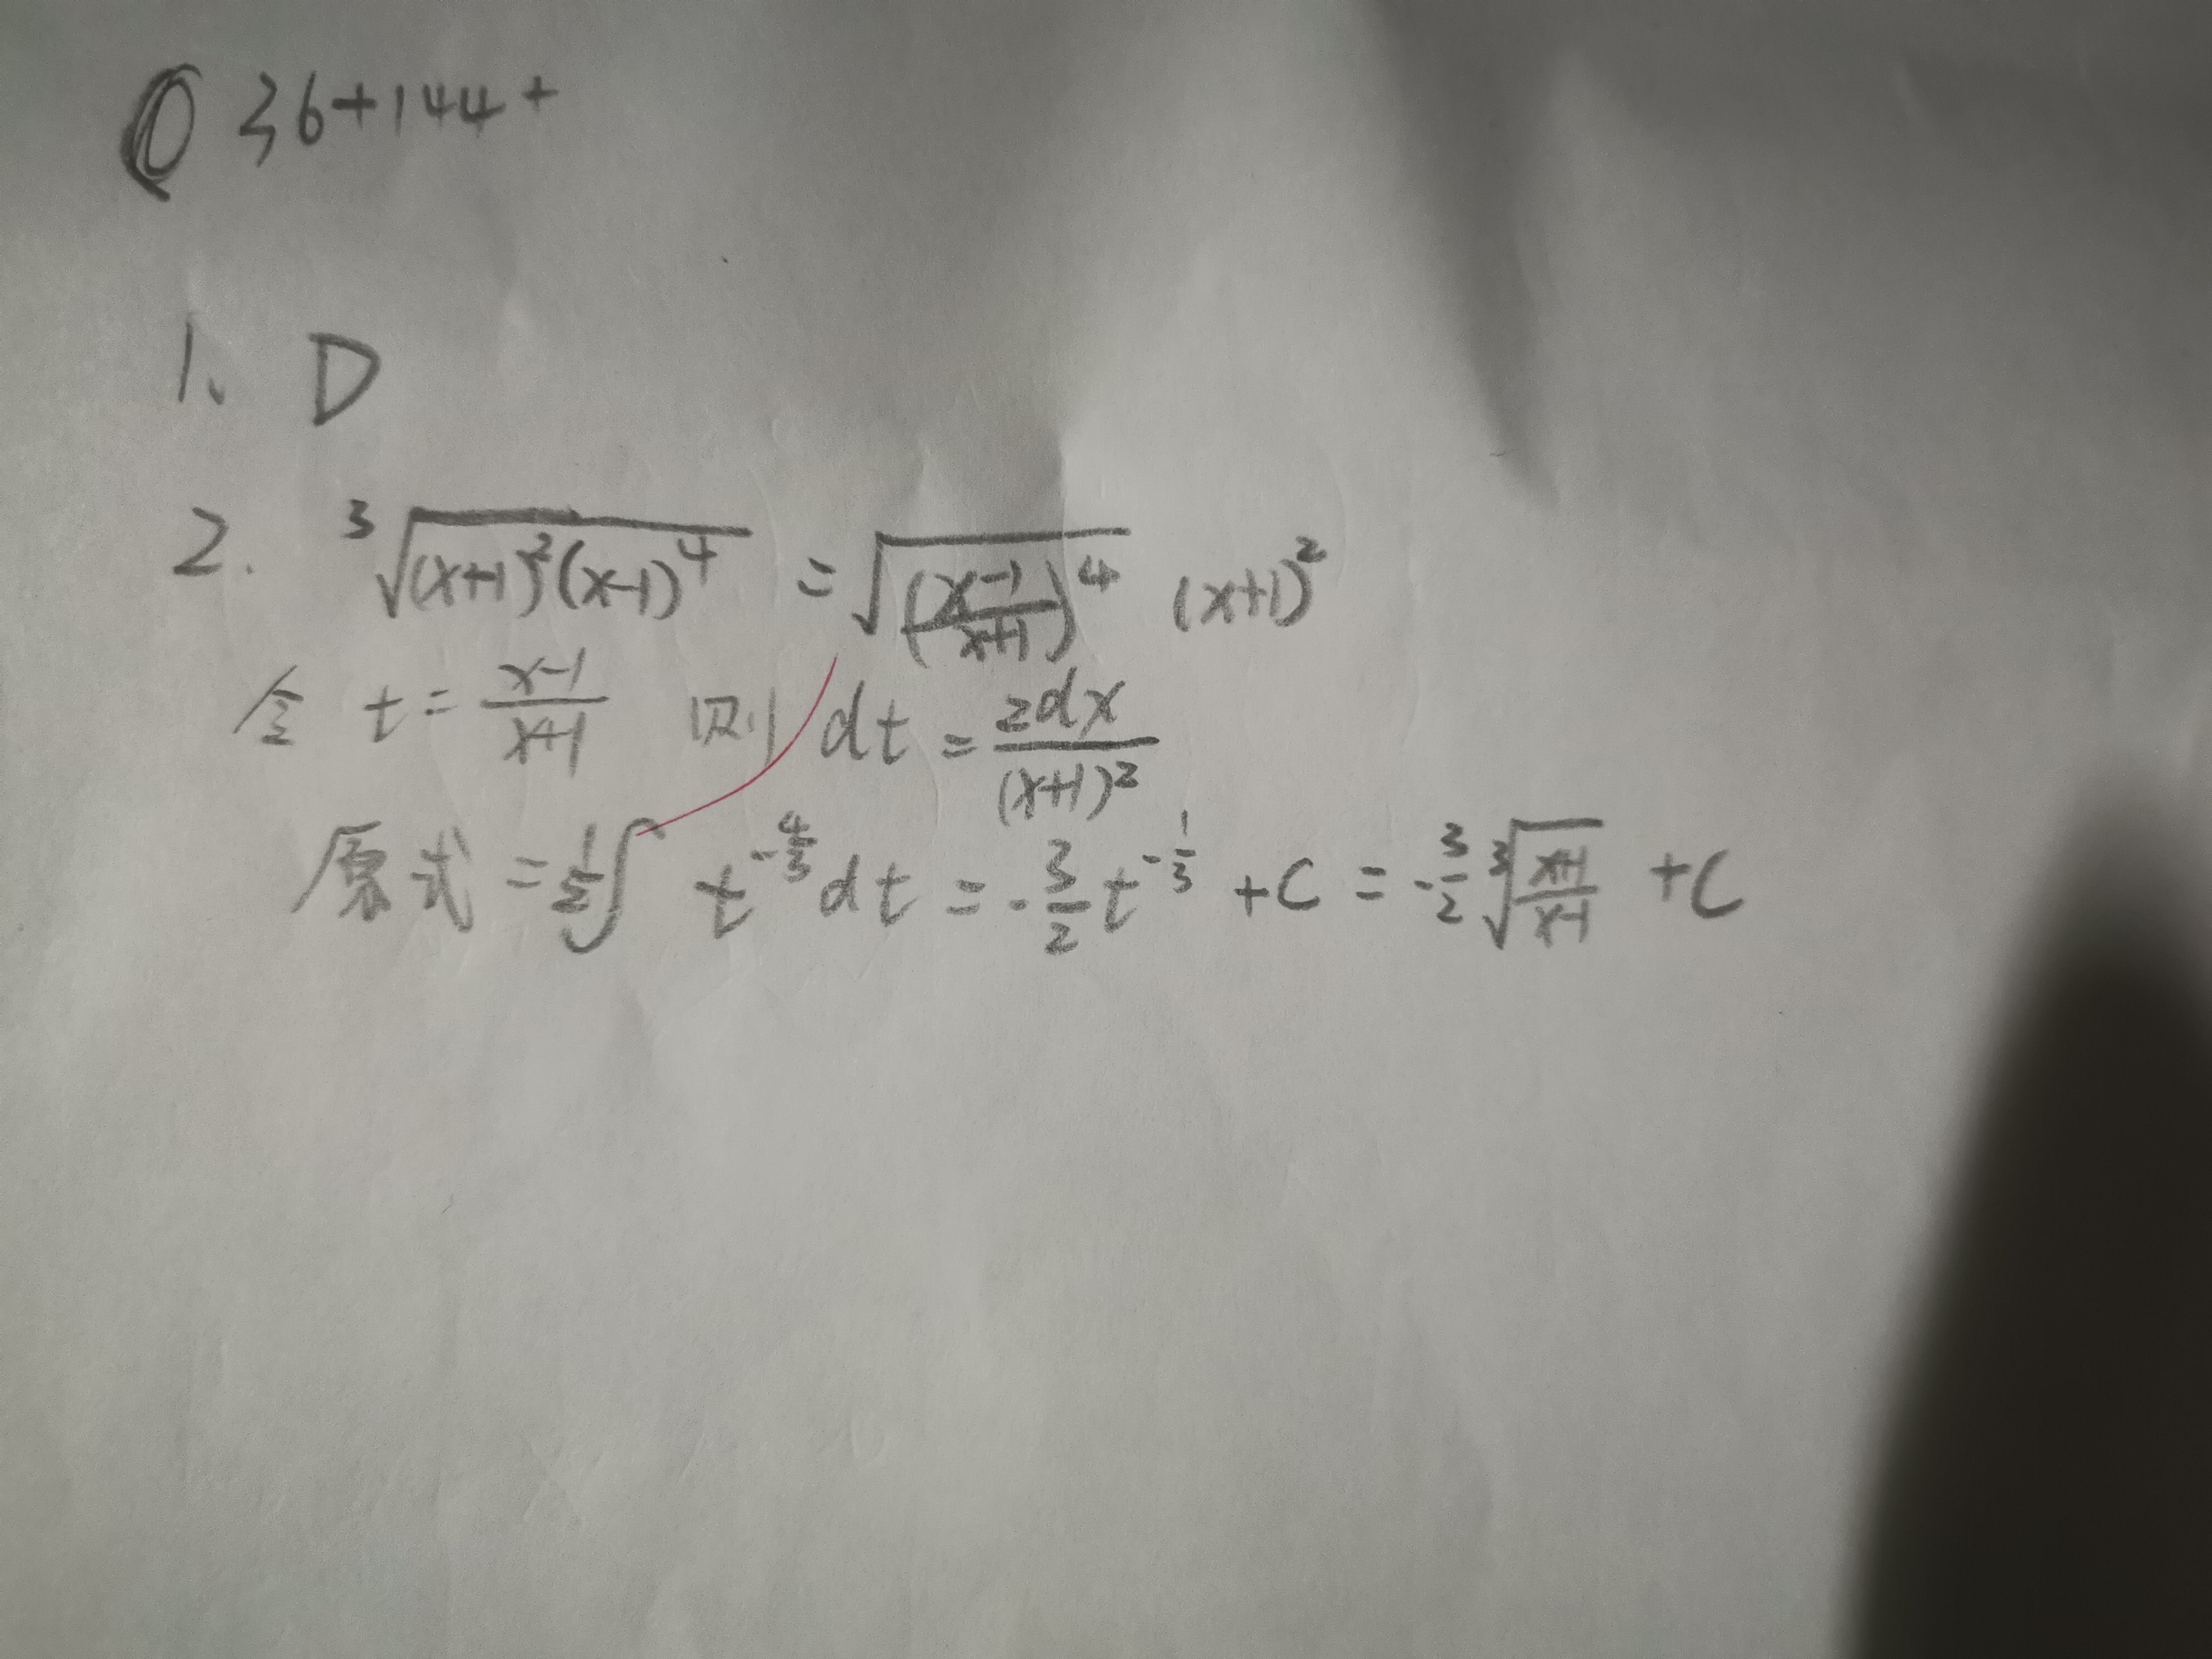 ① 36+144+
1、 D
2. ³√((x+1)²(x-1)⁴) = √((x-1)/(x+1))⁴ (x+1)²
令 t = (x-1)/(x+1) 则 dt = 2dx/(x+1)²
原式 = 1/2 ∫ t^(-4/3) dt = -3/2 t^(-1/3) + C = -3/2 ³√((x+1)/(x-1)) + C